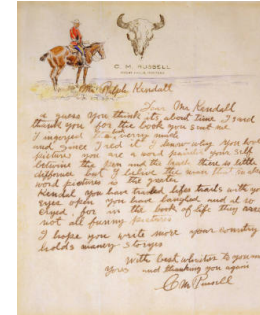 C. M. RUSSELL
GREAT FALLS, MONTANA
Mr Ralph Kendall
Dear Mr Kendall
I guess you think its about time I
thank you for the book you sent me
I injoyed it very much
and since I red it I know why you love
picture you are a word painter your self
betwine the pen and the brush there is little
diffornce but I belive the man that
word pictures is the greater
Kendal you have traled lifes trails with yo
eyes open You have laughed and
cryed for in the book of life they are
not all funny pictures
I hope you write more your country
holds maney storyes
With best whishes to you
Yours and thanking you again
C M Russell